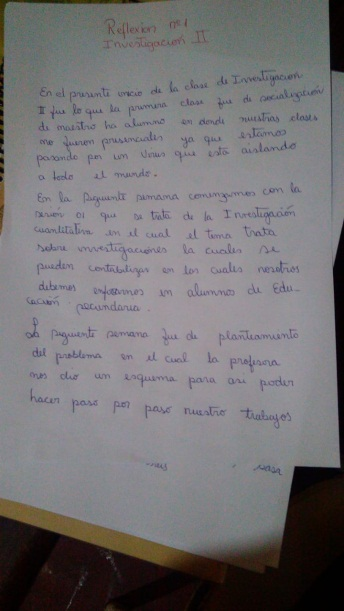 Reflexion nº1
Investigación II
En el presente inicio de la clase de Investigación
II fue lo que la primera clase fue de socialización
de maestro ha alumno en donde nuestras clases
no fueron presenciales ya que estamos
pasando por un virus que esta aislando
a todo el mundo.
En la siguiente semana comenzamos con la
sesión 01 que se trata de la Investigación
cuantitativa en el cual el tema trata
sobre investigaciones la cuales se
pueden contabilizar en los cuales nosotros
debemos enfocarnos en alumnos de Edu-
cación secundaria.
La siguiente semana fue de planteamiento
del problema en el cual la profesora
nos dio un esquema para asi poder
hacer paso por paso nuestro trabajos